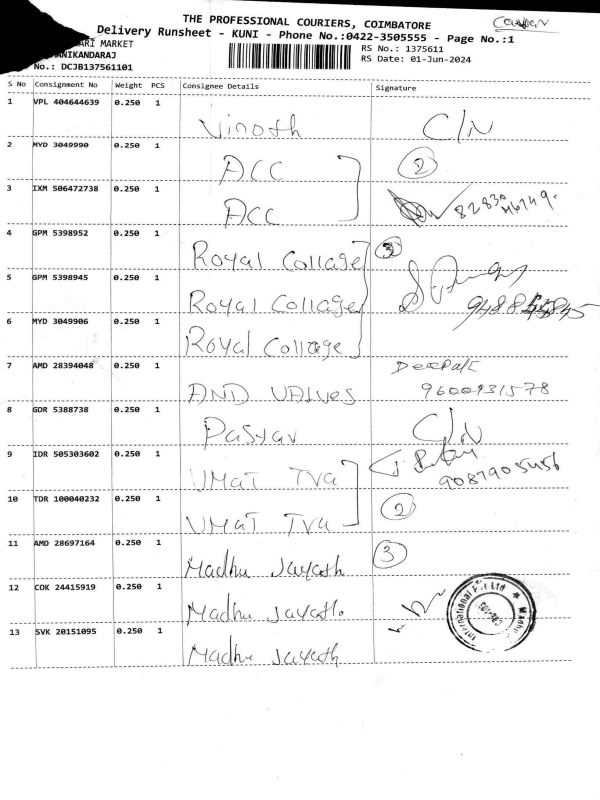 THE PROFESSIONAL COURIERS, COIMBATORE
Delivery Runsheet - KUNI - Phone No.:0422-3505555 - Page No.:1
ARI MARKET
ANIKANDARAJ
No.: DCJB137561101
RS No.: 1375611
RS Date: 01-Jun-2024
S No Consignment No Weight PCS Consignee Details Signature
1 VPL 404644639 0.250 1 Vinoth C/N
2 MYD 3049990 0.250 1 ACC 2
3 IXM 506472738 0.250 1 ACC 82830 46749
4 GPM 5398952 0.250 1 Royal Collage 3
5 GPM 5398945 0.250 1 Royal Collage
6 MYD 3049906 0.250 1 Royal Collage
7 AMD 28394048 0.250 1 AND VALVES Deepak 9600931578
8 GDR 5388738 0.250 1 C/N
9 IDR 505303602 0.250 1 UMaT TVa 9087905456
10 TDR 100040232 0.250 1 UMaT TVa 2
11 AMD 28697164 0.250 1 Madhu Jayath 3
12 COK 24415919 0.250 1 Madhu Jayath
13 SVK 20151095 0.250 1 Madhu Jayath
International Pvt Ltd ★ Madhu